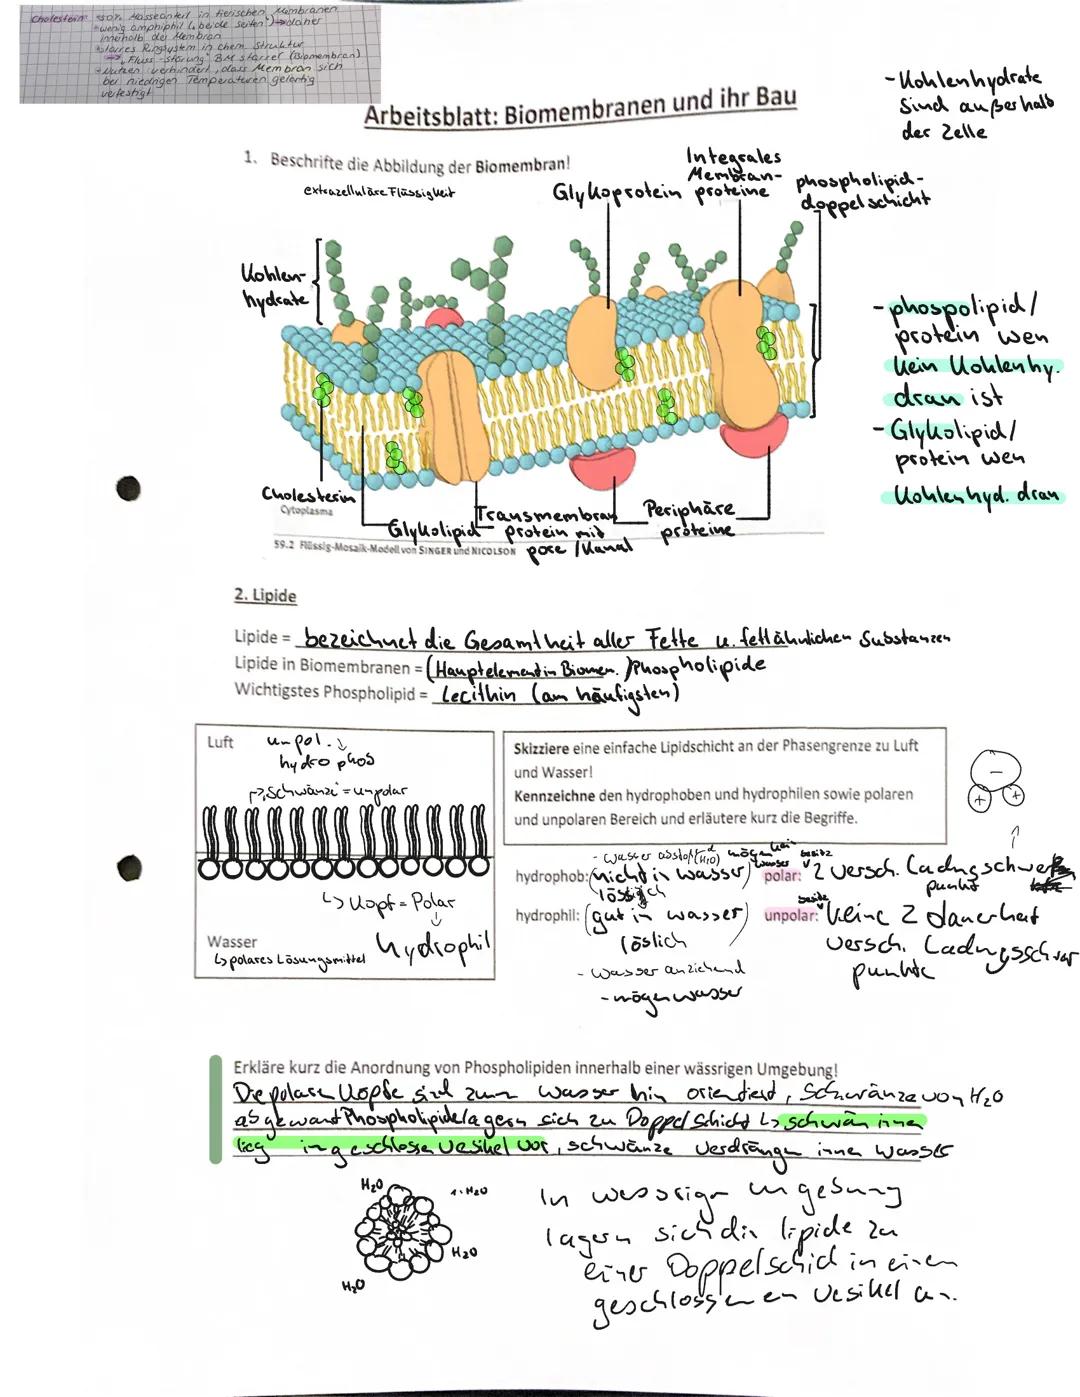 Cholesterin: ≤50% Masseanteil in tierischen Membranen
wenig amphiphil (beide Seiten) → daher
innerhalb der Membran
starres Ringsystem in chem. Struktur
"Fluss-störung" BM starrer (Biomembran)
Nutzen verhindert, dass Membran sich
bei niedrigen Temperaturen gelartig
verfestigt
Arbeitsblatt: Biomembranen und ihr Bau
- Kohlenhydrate
sind außerhalb
der Zelle
1. Beschrifte die Abbildung der Biomembran!
extrazelluläre Flüssigkeit
Glykoprotein
Integrales
Membran-
proteine
phospholipid-
doppelschicht
Kohlen-
hydrate
- phospolipid/
protein wen
kein Kohlenhy.
dran ist
- Glykolipid/
protein wen
Kohlenhyd. dran
Cholesterin
Cytoplasma
Glykolipid
Transmembran
protein mit
pore /Kanal
Periphäre
proteine
59.2 Flüssig-Mosaik-Modell von SINGER und NICOLSON
2. Lipide
Lipide = bezeichnet die Gesamtheit aller Fette u. fettähnlichen Substanzen
Lipide in Biomembranen = (Hauptelement in Biomem.) Phospholipide
Wichtigstes Phospholipid = Lecithin (am häufigsten)
Luft
unpol.
hydrophob
Schwänze = unpolar
↳ Kopf = Polar
↓
hydrophil
Wasser
↳ polares Lösungsmittel
Skizziere eine einfache Lipidschicht an der Phasengrenze zu Luft
und Wasser!
Kennzeichne den hydrophoben und hydrophilen sowie polaren
und unpolaren Bereich und erläutere kurz die Begriffe.
-
+ +
- wasser abstoßend (H2O) mögen kein wasser
hydrophob: (nicht in wasser)
löslich
hydrophil: (gut in wasser)
löslich
- wasser anziehend
- mögen wasser
besitz
polar: 2 versch. Ladungsschwer
punkt
besitz
unpolar: keine 2 dauerhaft
versch. Ladungsschwer
punkte
Erkläre kurz die Anordnung von Phospholipiden innerhalb einer wässrigen Umgebung!
Die polaren Köpfe sind zum Wasser hin orientiert, Schwänze von H2O
abgewant Phospholipide lagern sich zu Doppelschicht ↳ schwän innen
lieg in geschlossen Vesikel vor, schwänze verdrängen innen Wasser
H2O
H2O
H2O
H2O
In wässriger umgebung
lagern sich die lipide zu
einer Doppelschid in einen
geschlossenen vesikel an.